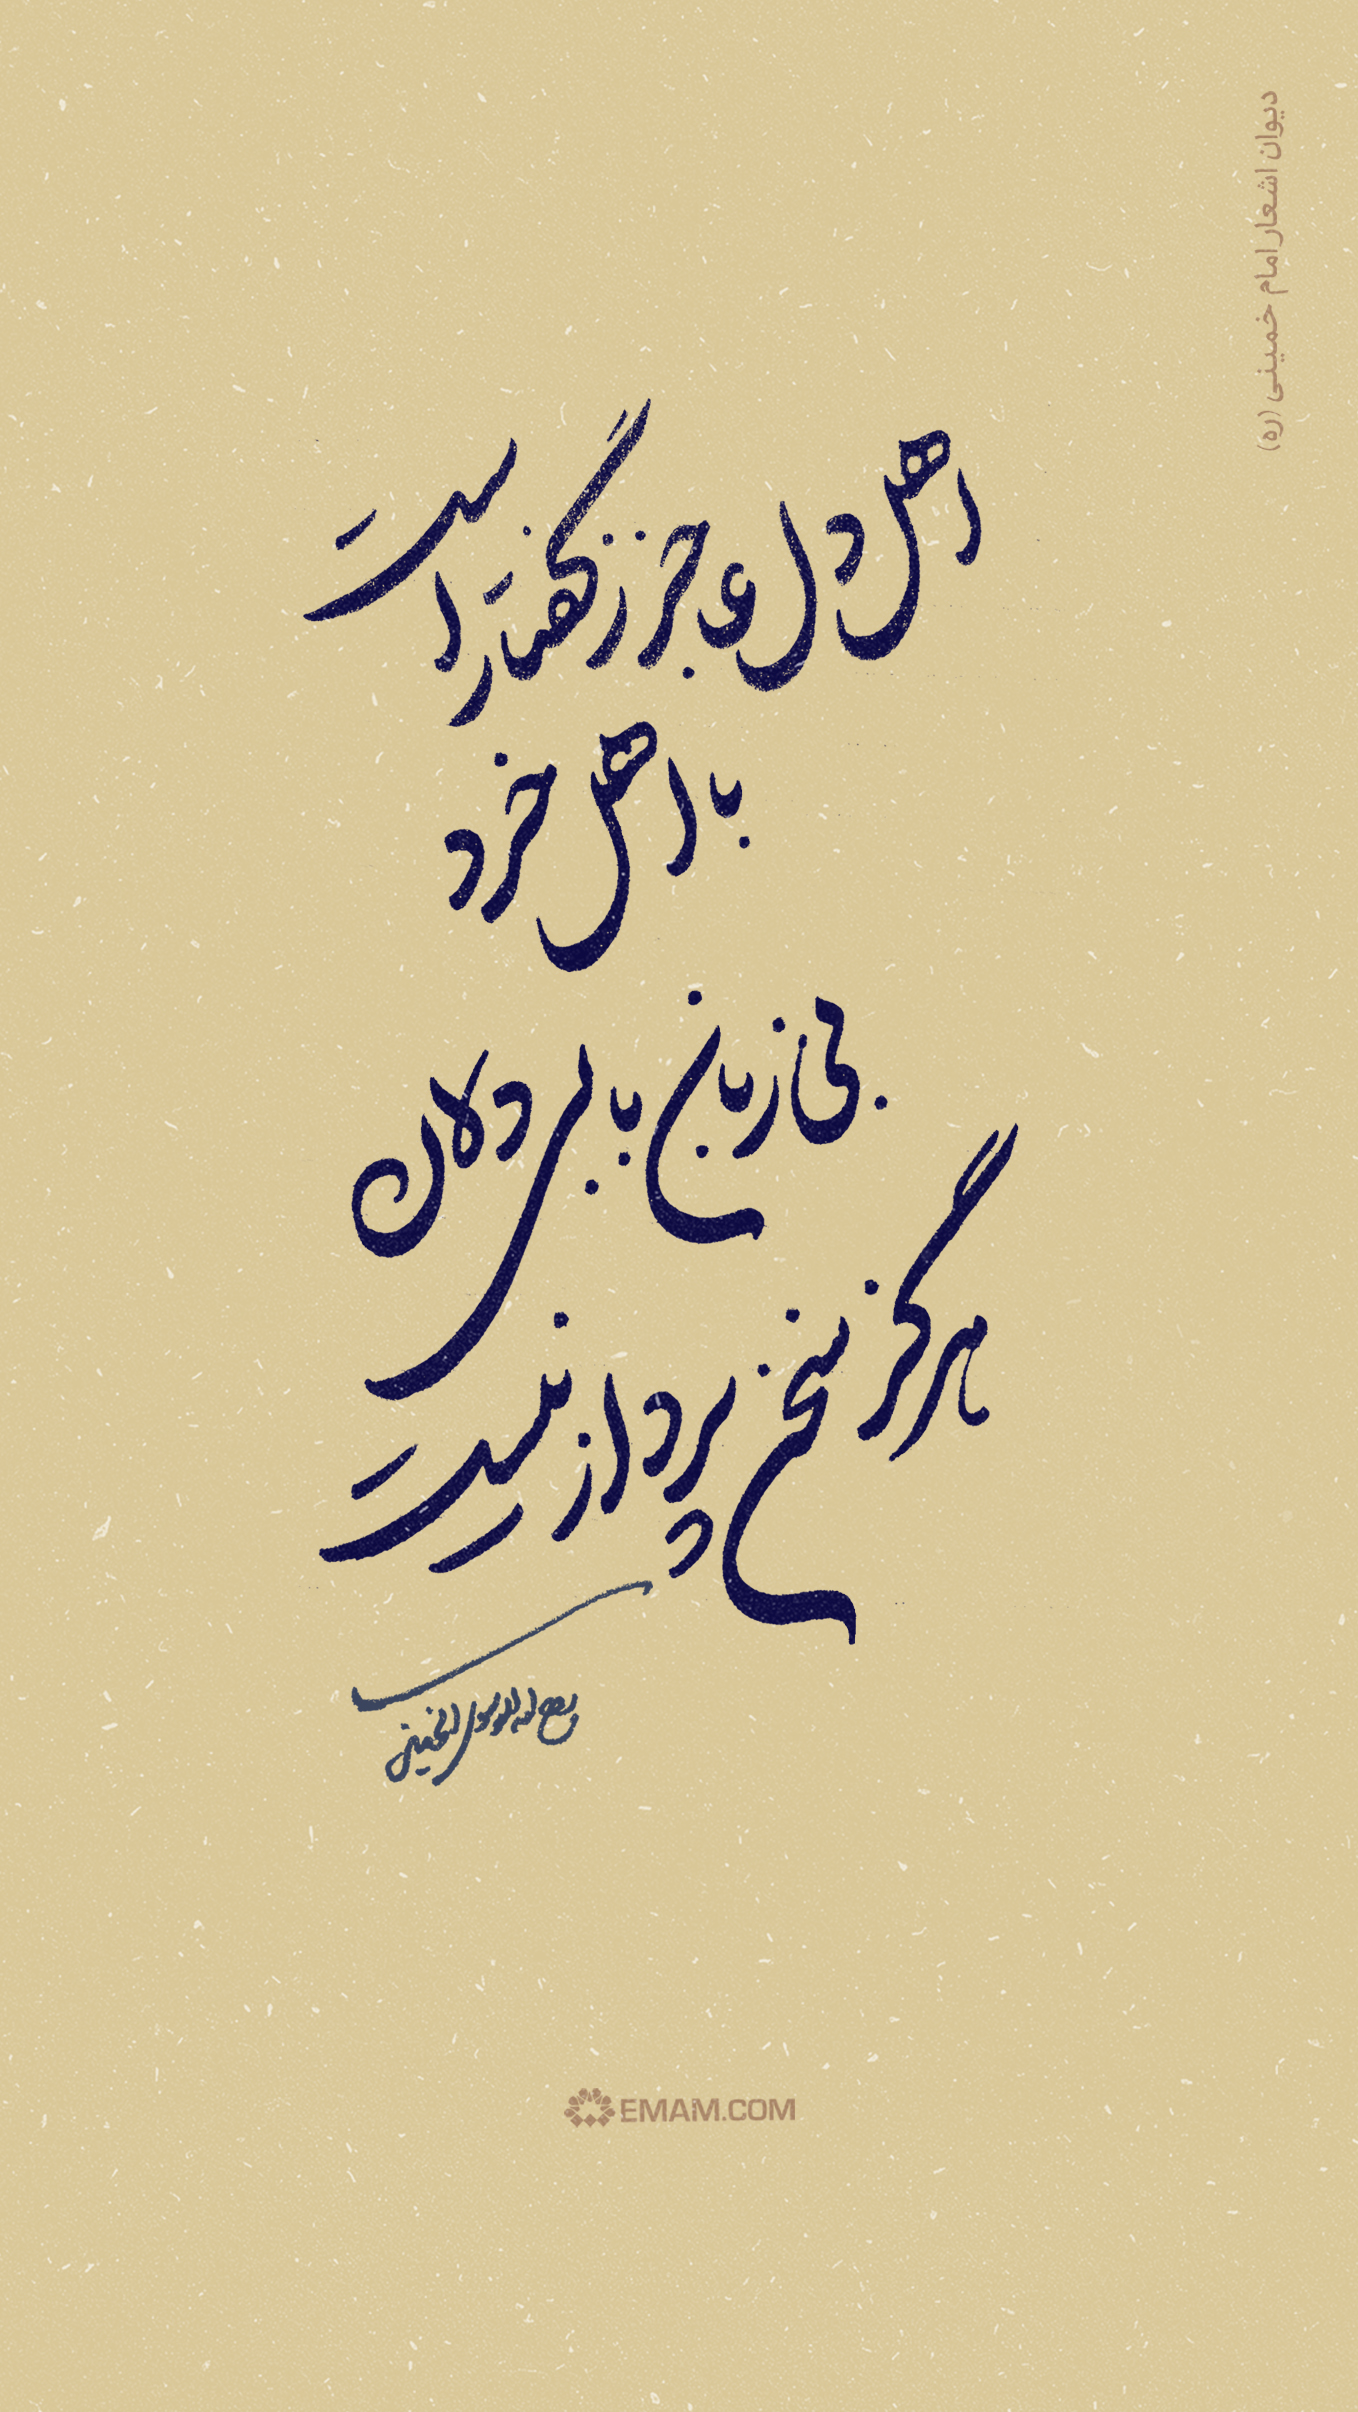 دیوان اشعار امام خمینی (ره)
اهل دل عاجز ز گفتار است
با اهل خرد
بی زبان با بی دلان
هرگز سخن پرداز نیست
روح الله الموسوی الخمینی
EMAM.COM